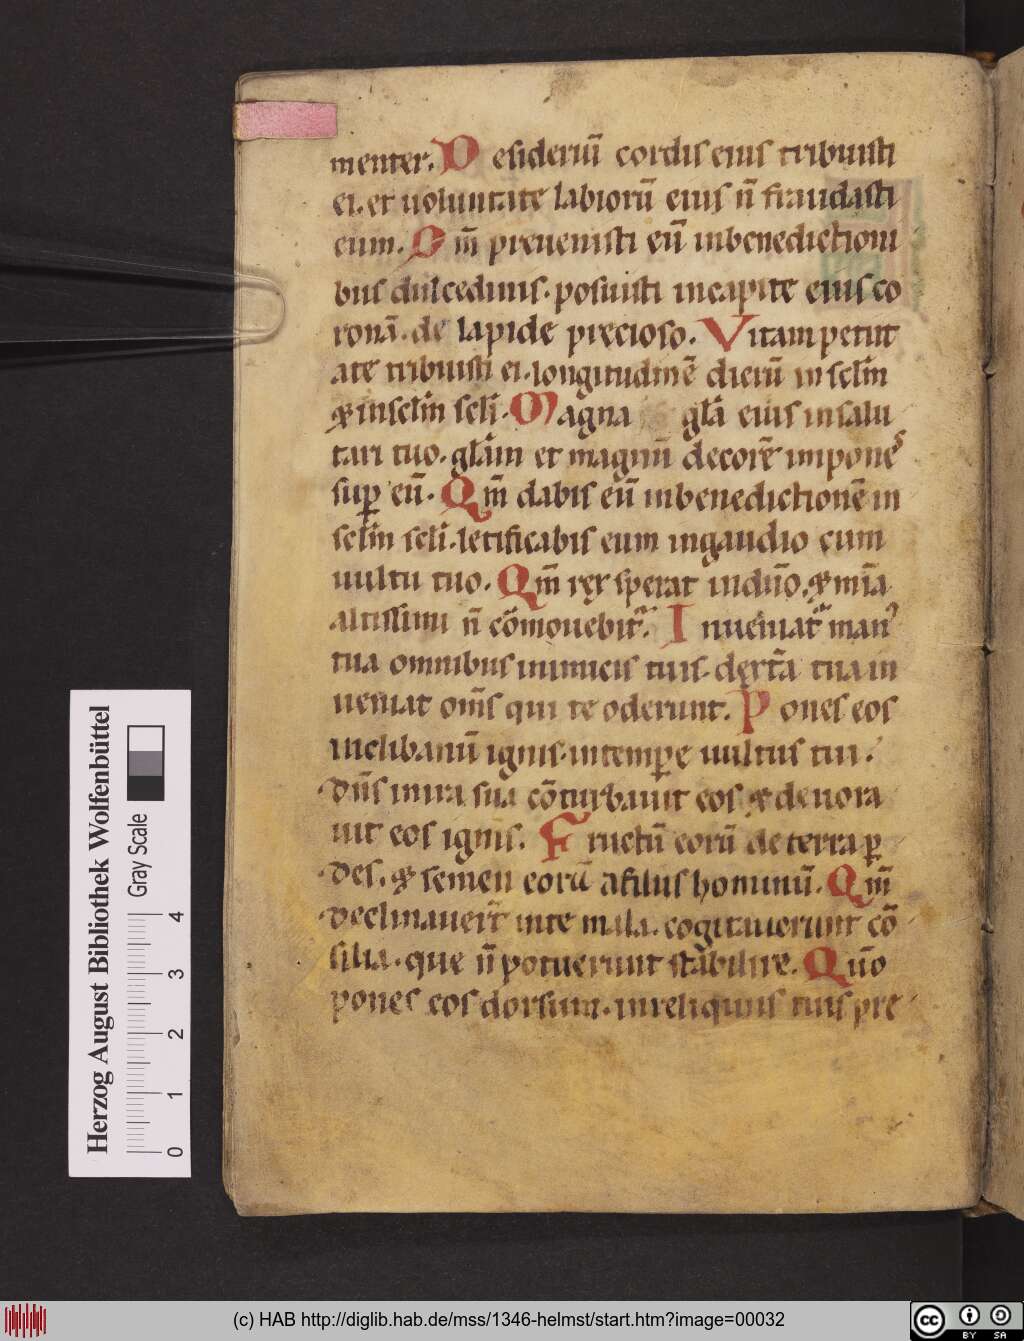 menter. Desideriū cordis eius tribuisti
ei. et uoluntate labiorū eius n̄ fraudasti
eum. Qm̄ preuenisti eū inbenedictioni
bus dulcedinis. posuisti incapite eius co
ronā. de lapide precioso. Vitam petiit
ate tribuisti ei. longitudinē dierū in sclm̄
& insclm̄ scli. Magna gl̄a eius insalu
tari tuo. gl̄am et magnū decorē impones
sup̱ eū. Qm̄ dabis eū inbenedictionē in
sclm̄ scli. letificabis eum ingaudio cum
uultu tuo. Qm̄ rex sperat indn̄o. & mīa
altissimi n̄ cōmouebit᷑. Inueniat᷑ man᷒
tua omnibus inimicis tuis. dext̄a tua in
ueniat om̄s qui te oderunt. Pones eos
inclibanū ignis. intemp̱e uultus tui.
Dn̄s inira sua cōturbauit eos & deuora
uit eos ignis. Fructū eorū de terra p̱
des. & semen eorū afiliis hominū. Qm̄
declinauer̄t inte mala. cogitauerunt cō
silia. que n̄ potuerunt stabilire. Qūo
pones eos dorsum. inreliquiis tuis pre
Herzog August Bibliothek Wolfenbüttel
Gray Scale
0 1 2 3 4
(c) HAB http://diglib.hab.de/mss/1346-helmst/start.htm?image=00032
cc BY SA